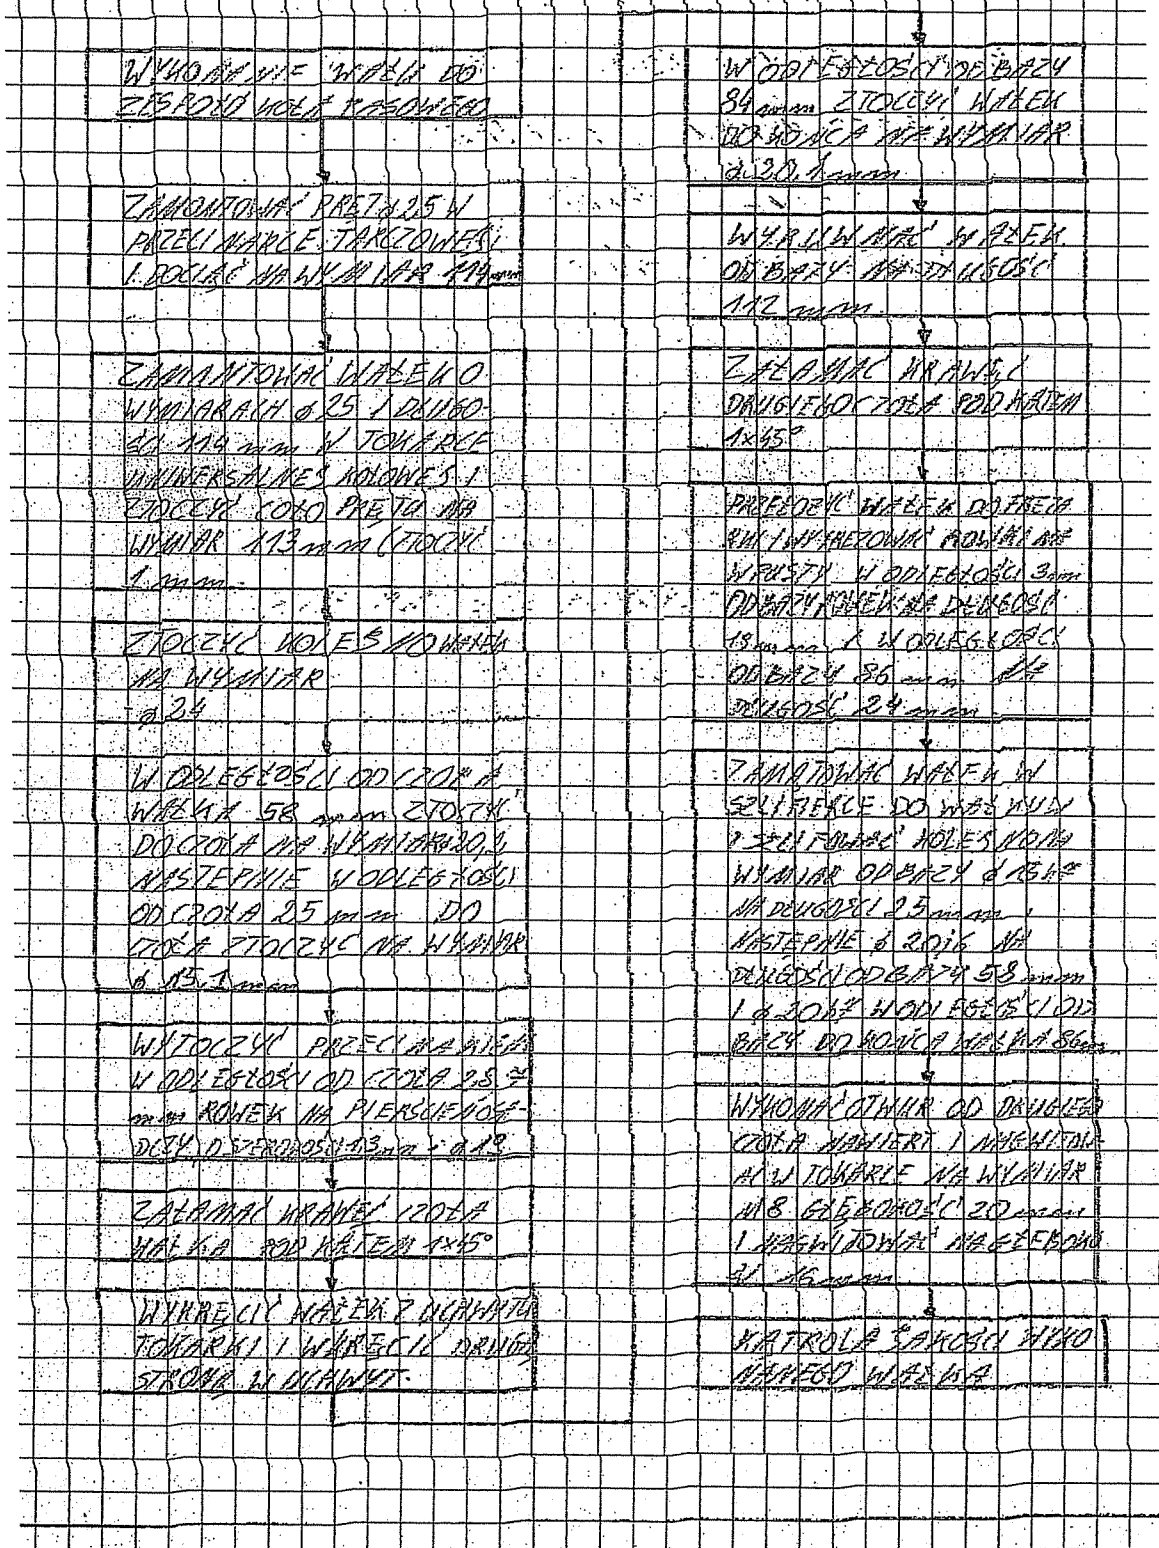 WYKONANIE WAŁKA DO
ZESPOŁU KOŁA PASOWEGO
ZAMONTOWAĆ PRĘT ø25 W
PRZECINARCE TARCZOWEJ
I DOCIĄĆ NA WYMIAR 114 mm
ZAMANTOWAĆ WAŁEK O
WYMIARACH ø 25 I DŁUGO-
ŚCI 114 mm W TOKARCE
UNIWERSALNEJ KOŁOWEJ I
ZTOCZYĆ COŁO PRĘTU NA
WYMIAR 113 mm (ZTOCZYĆ
1 mm
ZTOCZYĆ KOLEJNO WAŁEK
NA WYMIAR
ø 24
W ODLEGŁOŚCI OD CZOŁA
WAŁKA 58 mm ZTOCZYĆ
DO CZOŁA NA WYMIAR ø20,2
NASTEPINIE W ODLEGŁOŚCI
OD CZOŁA 25 mm DO
CZOŁA ZTOCZYĆ NA WYMIAR
ø 15,1 mm
WYTOCZYĆ PRZECINAKIEM
W ODLEGŁOŚCI OD CZOŁA 28
mm ROWEK NA PIERŚCIEŃ OSA-
DCZY O SZEROKOŚCI 1.3 mm
ZAŁAMAĆ KRAWĘĆ CZOŁA
WAŁKA POD KĄTEM 1x45°
WYKRĘCIĆ WAŁEK Z UCHWYTU
TOKARKI I WKRĘCIĆ DRUGĄ
STRONĄ W UCHWYT.
W ODLEGŁOŚCI OD BAZY
84 mm ZTOCZYĆ WAŁEK
DO KOŃCA NA WYMIAR
ø 20,1 mm
WYRUWNAĆ WAŁEK
OD BAZY NA DŁUGOŚĆ
112 mm.
ZAŁAMAĆ KRAWĘĆ
DRUGIEGO CZOŁA POD KĄTEM
1x45°
PRZEŁOŻYĆ WAŁEK DO FREZA
RKI I WYFREZOWAĆ ROWKI NA
WPUSTY W ODLEGŁOŚCI 3 mm
OD BAZY ROWEK NA DŁUGOŚĆ
18 mm I W ODLEGŁOŚCI
OD BAZY 86 mm NA
DŁUGOŚĆ 24 mm
ZAMATOWAĆ WAŁEK W
SZLIFIERCE DO WAŁKUW
I SZLIFOWAĆ KOLEJNO NA
WYMIAR OD BAZY ø 15 h7
NA DŁUGOŚCI 25 mm,
NASTEPNIE ø 20j6 NA
DŁUGOŚCI OD BAZY 58 mm
I ø 20h7 W ODLEGŁOŚCI OD
BAZY DO KOŃCA WAŁKA 86 mm
WYKONAĆ OTWUR OD DRUGIEGO
CZOŁA NAWIERT I NAGWITOWA-
Ć W TOKARCE NA WYMIAR
M8 GŁĘBOKOŚĆ 20 mm
I NAGWITOWAĆ NA GŁĘBOKO
ŚĆ 16 mm
KATROLA JAKOŚCI WYKO
NANEGO WAŁKA